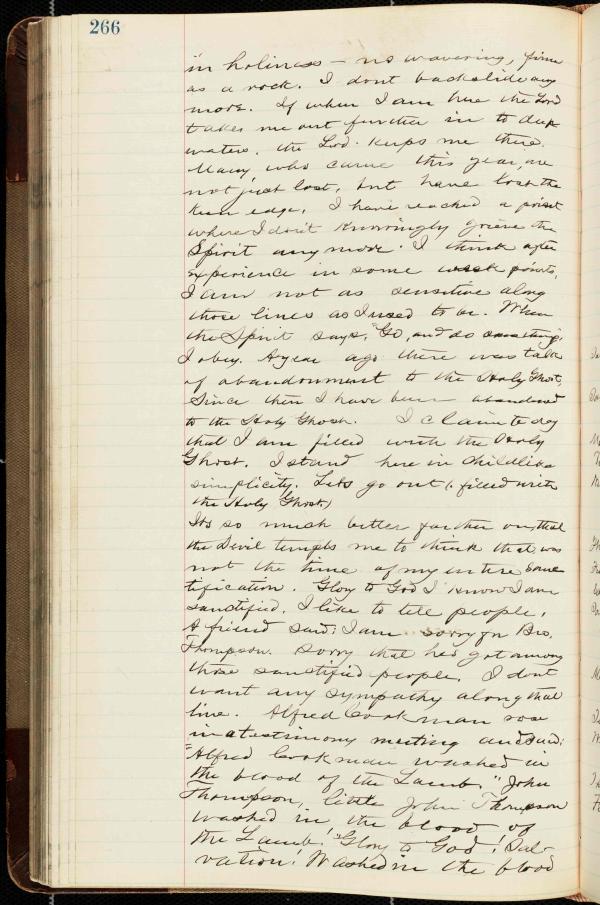 266
in holiness — no wavering, firm
as a rock. I dont backslide any
more. If when I am here the Lord
takes me out further in to deep
waters, the Lord keeps me there.
Many, who came this year, are
not just lost, but have lost the
keen edge. I have reached a point
where I don't knowingly grieve the
Spirit any more. I think after
experience in some weak points,
I am not as sensitive along
those lines as I used to be. When
the Spirit says, "Go, and do something,
I obey. A year ago there was talk
of abandonment to the Holy Ghost,
Since then I have been abandoned
to the Holy Ghost. I claim to day
that I am filled with the Holy
Ghost. I stand here in childlike
simplicity. Lets go out (filled with
the Holy Ghost)
Its so much better further on, that
the Devil tempts me to think that was
not the time of my entire sanc
tification. Glory to God I know I am
sanctified. I like to tell people.
A friend said: I am sorry for Bro.
Thompson. Sorry that he's got among
those sanctified people. I dont
want any sympathy along that
line. Alfred Cookman rose
in a testimony meeting and said:
"Alfred Cookman washed in
the blood of the Lamb." John
Thompson, little John Thompson
washed in the blood of
the Lamb! "Glory to God! Sal-
vation! Washed in the blood